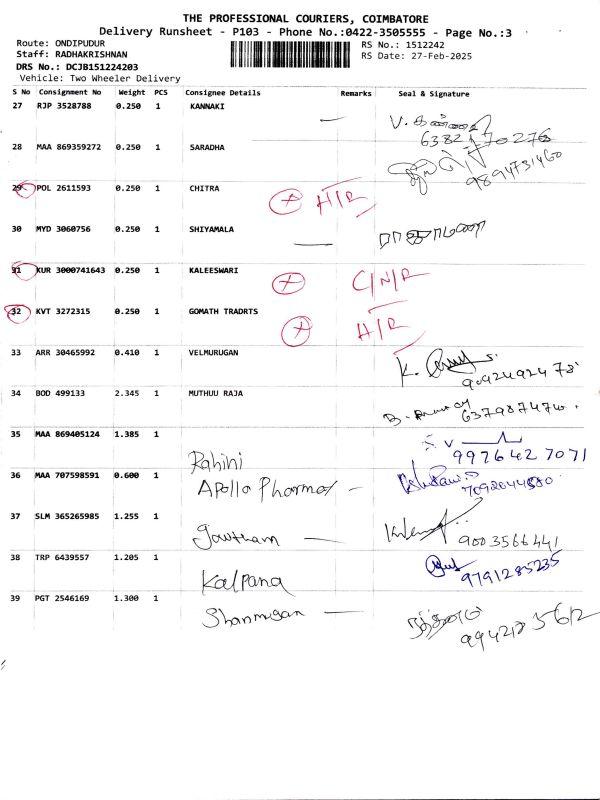 THE PROFESSIONAL COURIERS, COIMBATORE
Delivery Runsheet - P103 - Phone No.:0422-3505555 - Page No.:3
Route: ONDIPUDUR RS No.: 1512242
Staff: RADHAKRISHNAN RS Date: 27-Feb-2025
DRS No.: DCJB151224203
Vehicle: Two Wheeler Delivery
S No Consignment No Weight PCS Consignee Details Remarks Seal & Signature
27 RJP 3528788 0.250 1 KANNAKI
6382170276
28 MAA 869359272 0.250 1 SARADHA
9894731460
29 POL 2611593 0.250 1 CHITRA H/R
30 MYD 3060756 0.250 1 SHIYAMALA
31 KUR 3000741643 0.250 1 KALEESWARI C/N/R
32 KVT 3272315 0.250 1 GOMATH TRADRTS H/R
33 ARR 30465992 0.410 1 VELMURUGAN
34 BOD 499133 2.345 1 MUTHUU RAJA
6379874740
35 MAA 869405124 1.385 1 Rohini
9976427071
36 MAA 707598591 0.600 1 Apollo Pharmacy
7092044880
37 SLM 365265985 1.255 1 Gowtham
9003566441
38 TRP 6439557 1.205 1 Kalpana
9791285235
39 PGT 2546169 1.300 1 Shanmugan